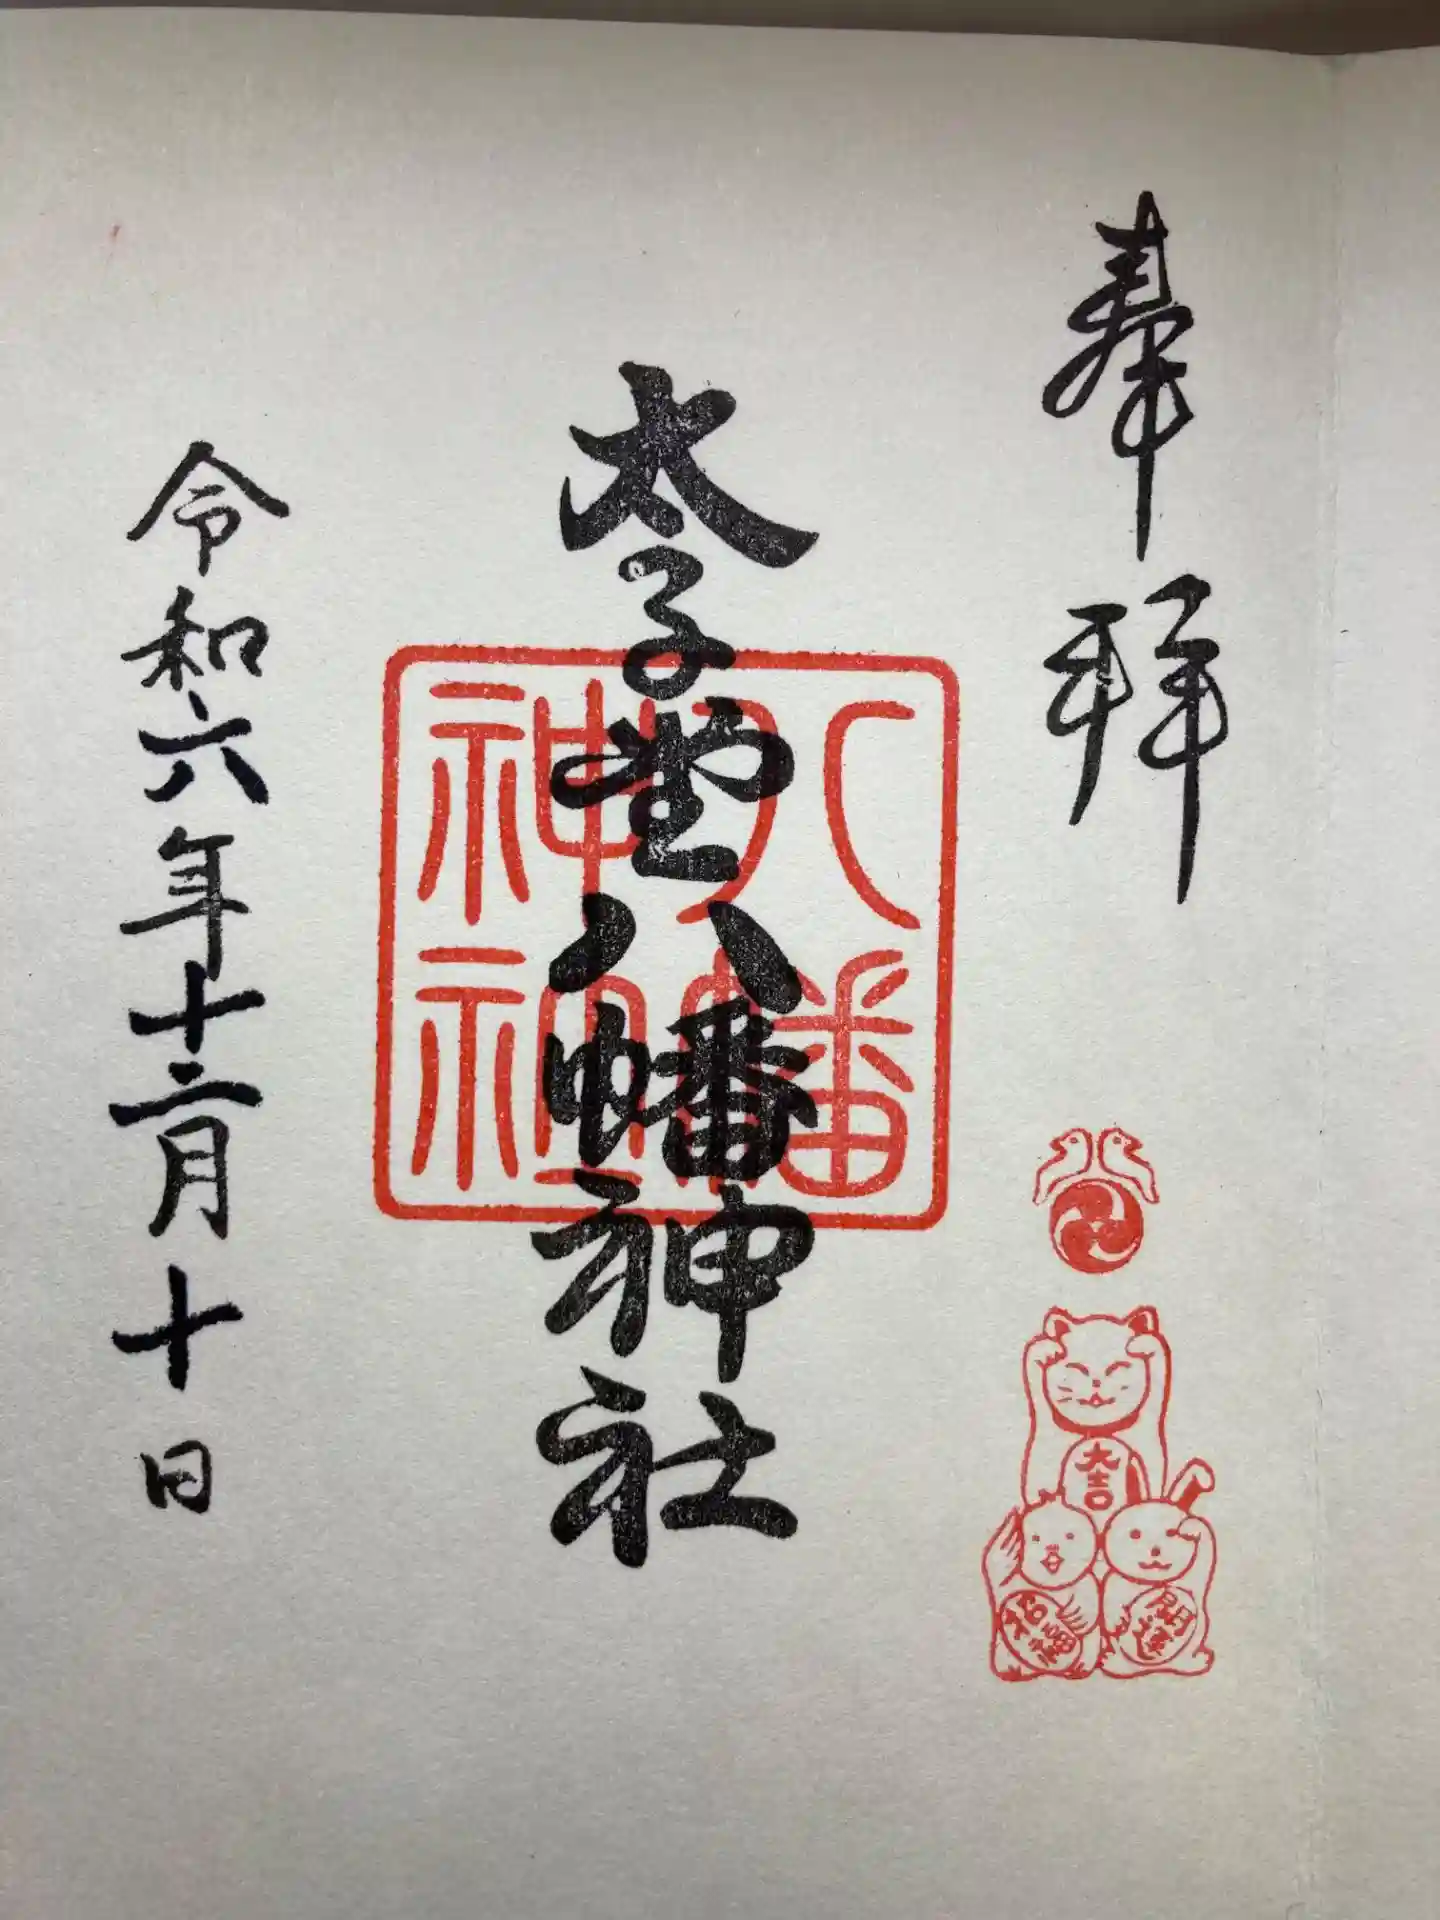 奉拝
太子堂八幡神社
八幡
神社
令和六年十二月十日
大吉
招福
開運